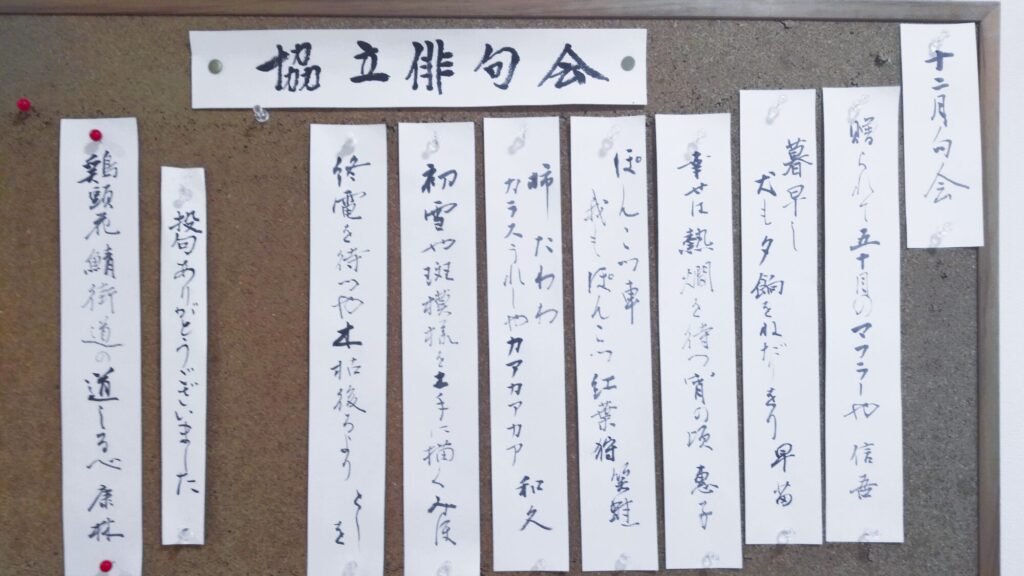 協立俳句会
十二月句会
贈られて五十目のマフラーや 信吾
暮早し
犬も夕餉をねだりをり 早苗
幸せは熱燗を待つ宵の頃 惠子
ぽんこつ車
我もぽんこつ紅葉狩 笑蛙
柿たわわ
カラスうれしやカアカアカア 和久
初雪や斑模様を土手に描く みほ
終電を待つや木枯後ろより としを
投句ありがとうございました
鶏頭花鯖街道の道しるべ 康林